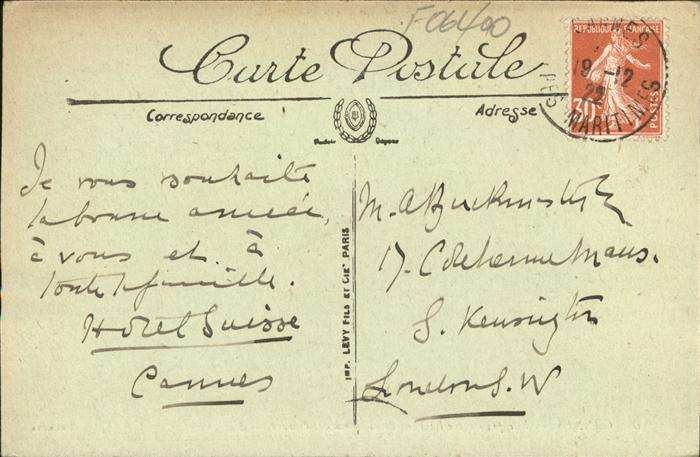 F06400
Carte Postale
Correspondance
Adresse
RÉPUBLIQUE FRANÇAISE
CANNES
19-12
22
POSTES
ALPES MARITIMES
Je vous souhaite
la bonne année,
à vous et à
toute la famille.
Hotel Suisse
Cannes
IMP. LEVY FILS ET CIE PARIS
M. A Buckmaster
17. Mans.
S. Kensington
London S.W